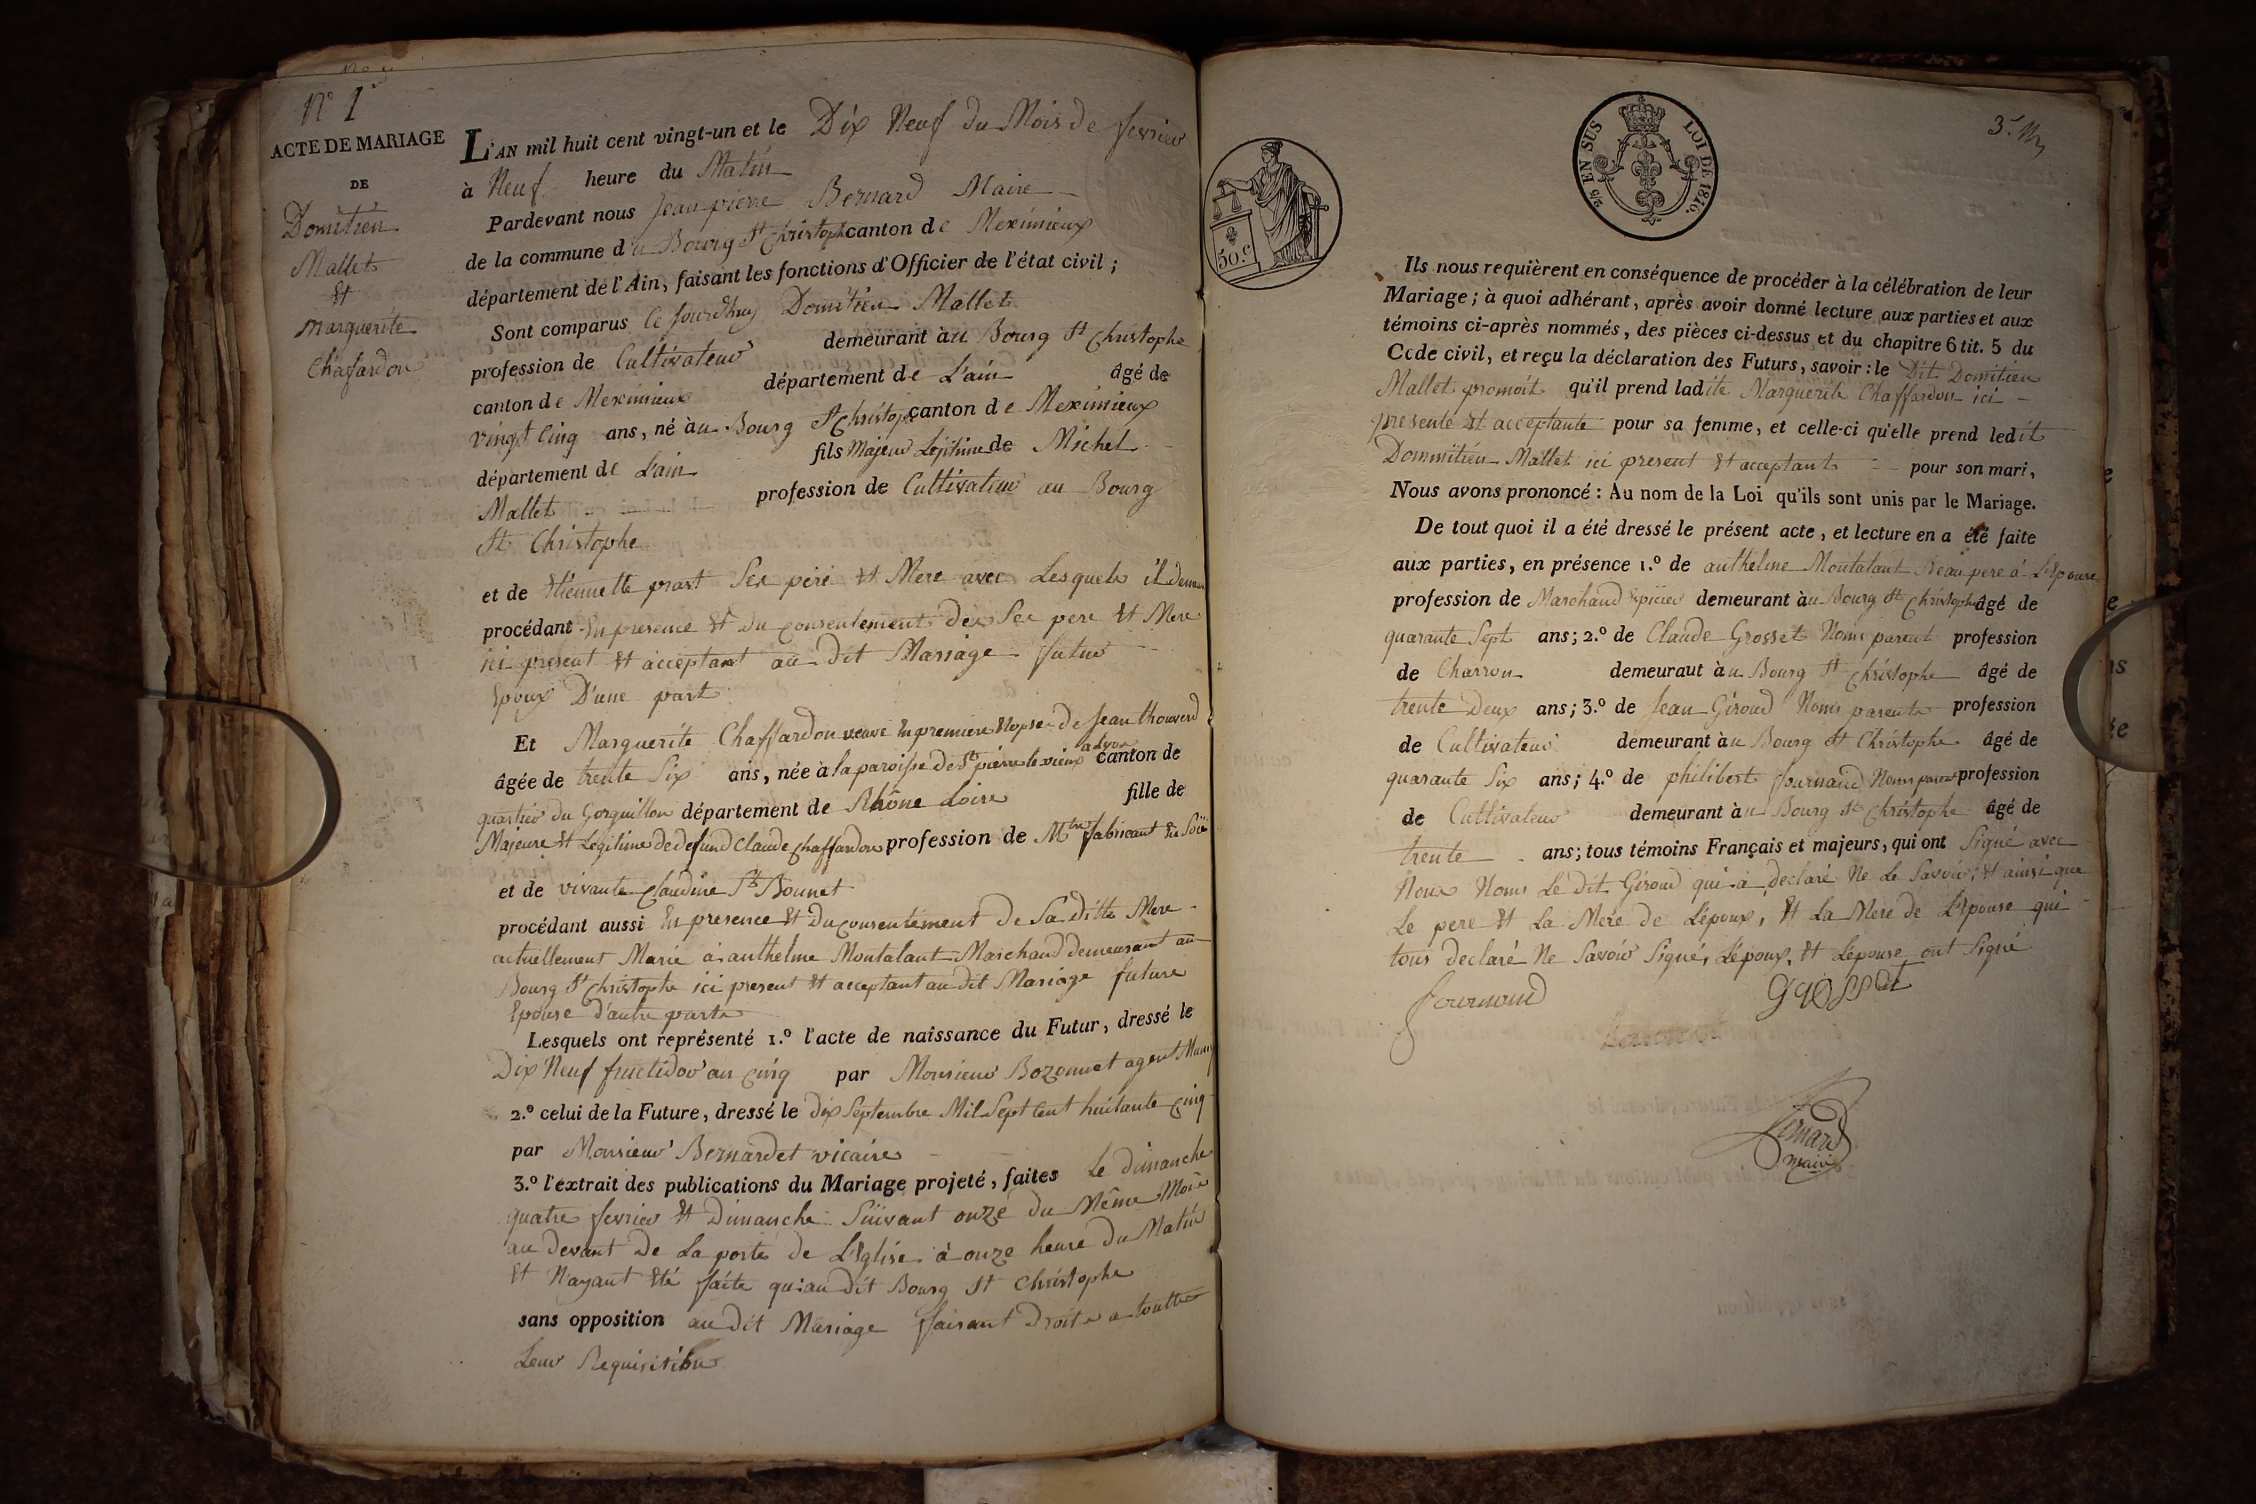 N° 1
ACTE DE MARIAGE
DE
Domitien
Mallet
Et
Marguerite
Chaffardon
L'AN mil huit cent vingt-un et le Dix Neuf du Mois de fevrier
à Neuf heure du Matin
Pardevant nous Jean pierre Bernard Maire
de la commune du Bourg St Christophe canton de Meximieux
département de l'Ain, faisant les fonctions d'Officier de l'état civil ;
Sont comparus Ce Jourd'huy Domitien Mallet
profession de Cultivateur demeurant àu Bourg St Christophe
canton de Meximieux département de L'ain âgé de
vingt Cinq ans, né àu Bourg St Christop canton de Meximieux
département de L'ain fils Majeur Légitime de Michel
Mallet profession de Cultivateur au Bourg
St Christophe
et de Etiennette prast Ses pere Et Mere avec Lesquels il demeure
procédant En presence Et Du consentement des Ses pere Et Mere
ici present Et acceptant au dit Mariage futur
Epoux D'une part
Et Marguerite Chaffardon veuve En premiere Nopse de Jean thouverd
âgée de trente Six ans, née à la paroisse de St pierre le vieux a Lyon canton de
quartier du Gorguillon département de Rhône Loire fille de
Majeure Et Légitime de defund Claude Chaffardon profession de Mtre fabricant En Soie
et de vivante Claudine St Bonnet
procédant aussi En presence Et Du consentement de Sa ditte Mere
actuellement Marié à anthelme Montalant Marchand demeurant au
Bourg St Christophe ici present Et acceptant au dit Mariage future
Epouse d'autre part
Lesquels ont représenté 1.° l'acte de naissance du Futur, dressé le
Dix Neuf fructidor an cinq par Monsieur Bozonnet agent Muni
2.° celui de la Future, dressé le dix Septembre Mil Sept Cent huitante cinq
par Monsieur Bernardet vicaire
3.° l'extrait des publications du Mariage projeté, faites Le dimanche
quatre fevrier Et Dimanche Suivant onze du Même Mois
au devant de La porte de L'Eglise à onze heure du Matin
Et Nayant Eté faite qu'au dit Bourg St Christophe
sans opposition au dit Mariage faisant Droit a toutte
Leur Requisition
50. C
2/5 EN SUS LOI DE 1816.
Ils nous requièrent en conséquence de procéder à la célébration de leur
Mariage ; à quoi adhérant, après avoir donné lecture aux parties et aux
témoins ci-après nommés, des pièces ci-dessus et du chapitre 6 tit. 5 du
Code civil, et reçu la déclaration des Futurs, savoir : le Dit Domitien
Mallet promoit qu'il prend ladite Marguerite Chaffardon ici
presente Et acceptante pour sa femme, et celle-ci qu'elle prend ledit
Dommitien Mallet ici present Et acceptant pour son mari,
Nous avons prononcé : Au nom de la Loi qu'ils sont unis par le Mariage.
De tout quoi il a été dressé le présent acte, et lecture en a été faite
aux parties, en présence 1.° de anthelme Montalant Beau pere à L'Epouse
profession de Marchand Epicier demeurant àu Bourg St Christophe âgé de
quarante Sept ans ; 2.° de Claude Grosset Nom parent profession
de Charron demeuraut àu Bourg St Christophe âgé de
trente Deux ans ; 3.° de Jean Giroud Nom parent profession
de Cultivateur demeurant àu Bourg St Christophe âgé de
quarante Six ans ; 4.° de philibert fournand Nom parent profession
de Cultivateur demeurant àu Bourg St Christophe âgé de
trente ans ; tous témoins Français et majeurs, qui ont Signé avec
Nous Nom Le dit Giroud qui a declaré Ne Le Savoir, Et ainsi que
Le pere Et La Mere de L'époux, Et La Mere de L'Epouse qui
tous declaré Ne Savoir Signé, L'époux, Et L'épouse ont Signé
fournand
Grosset
Bernard
maire